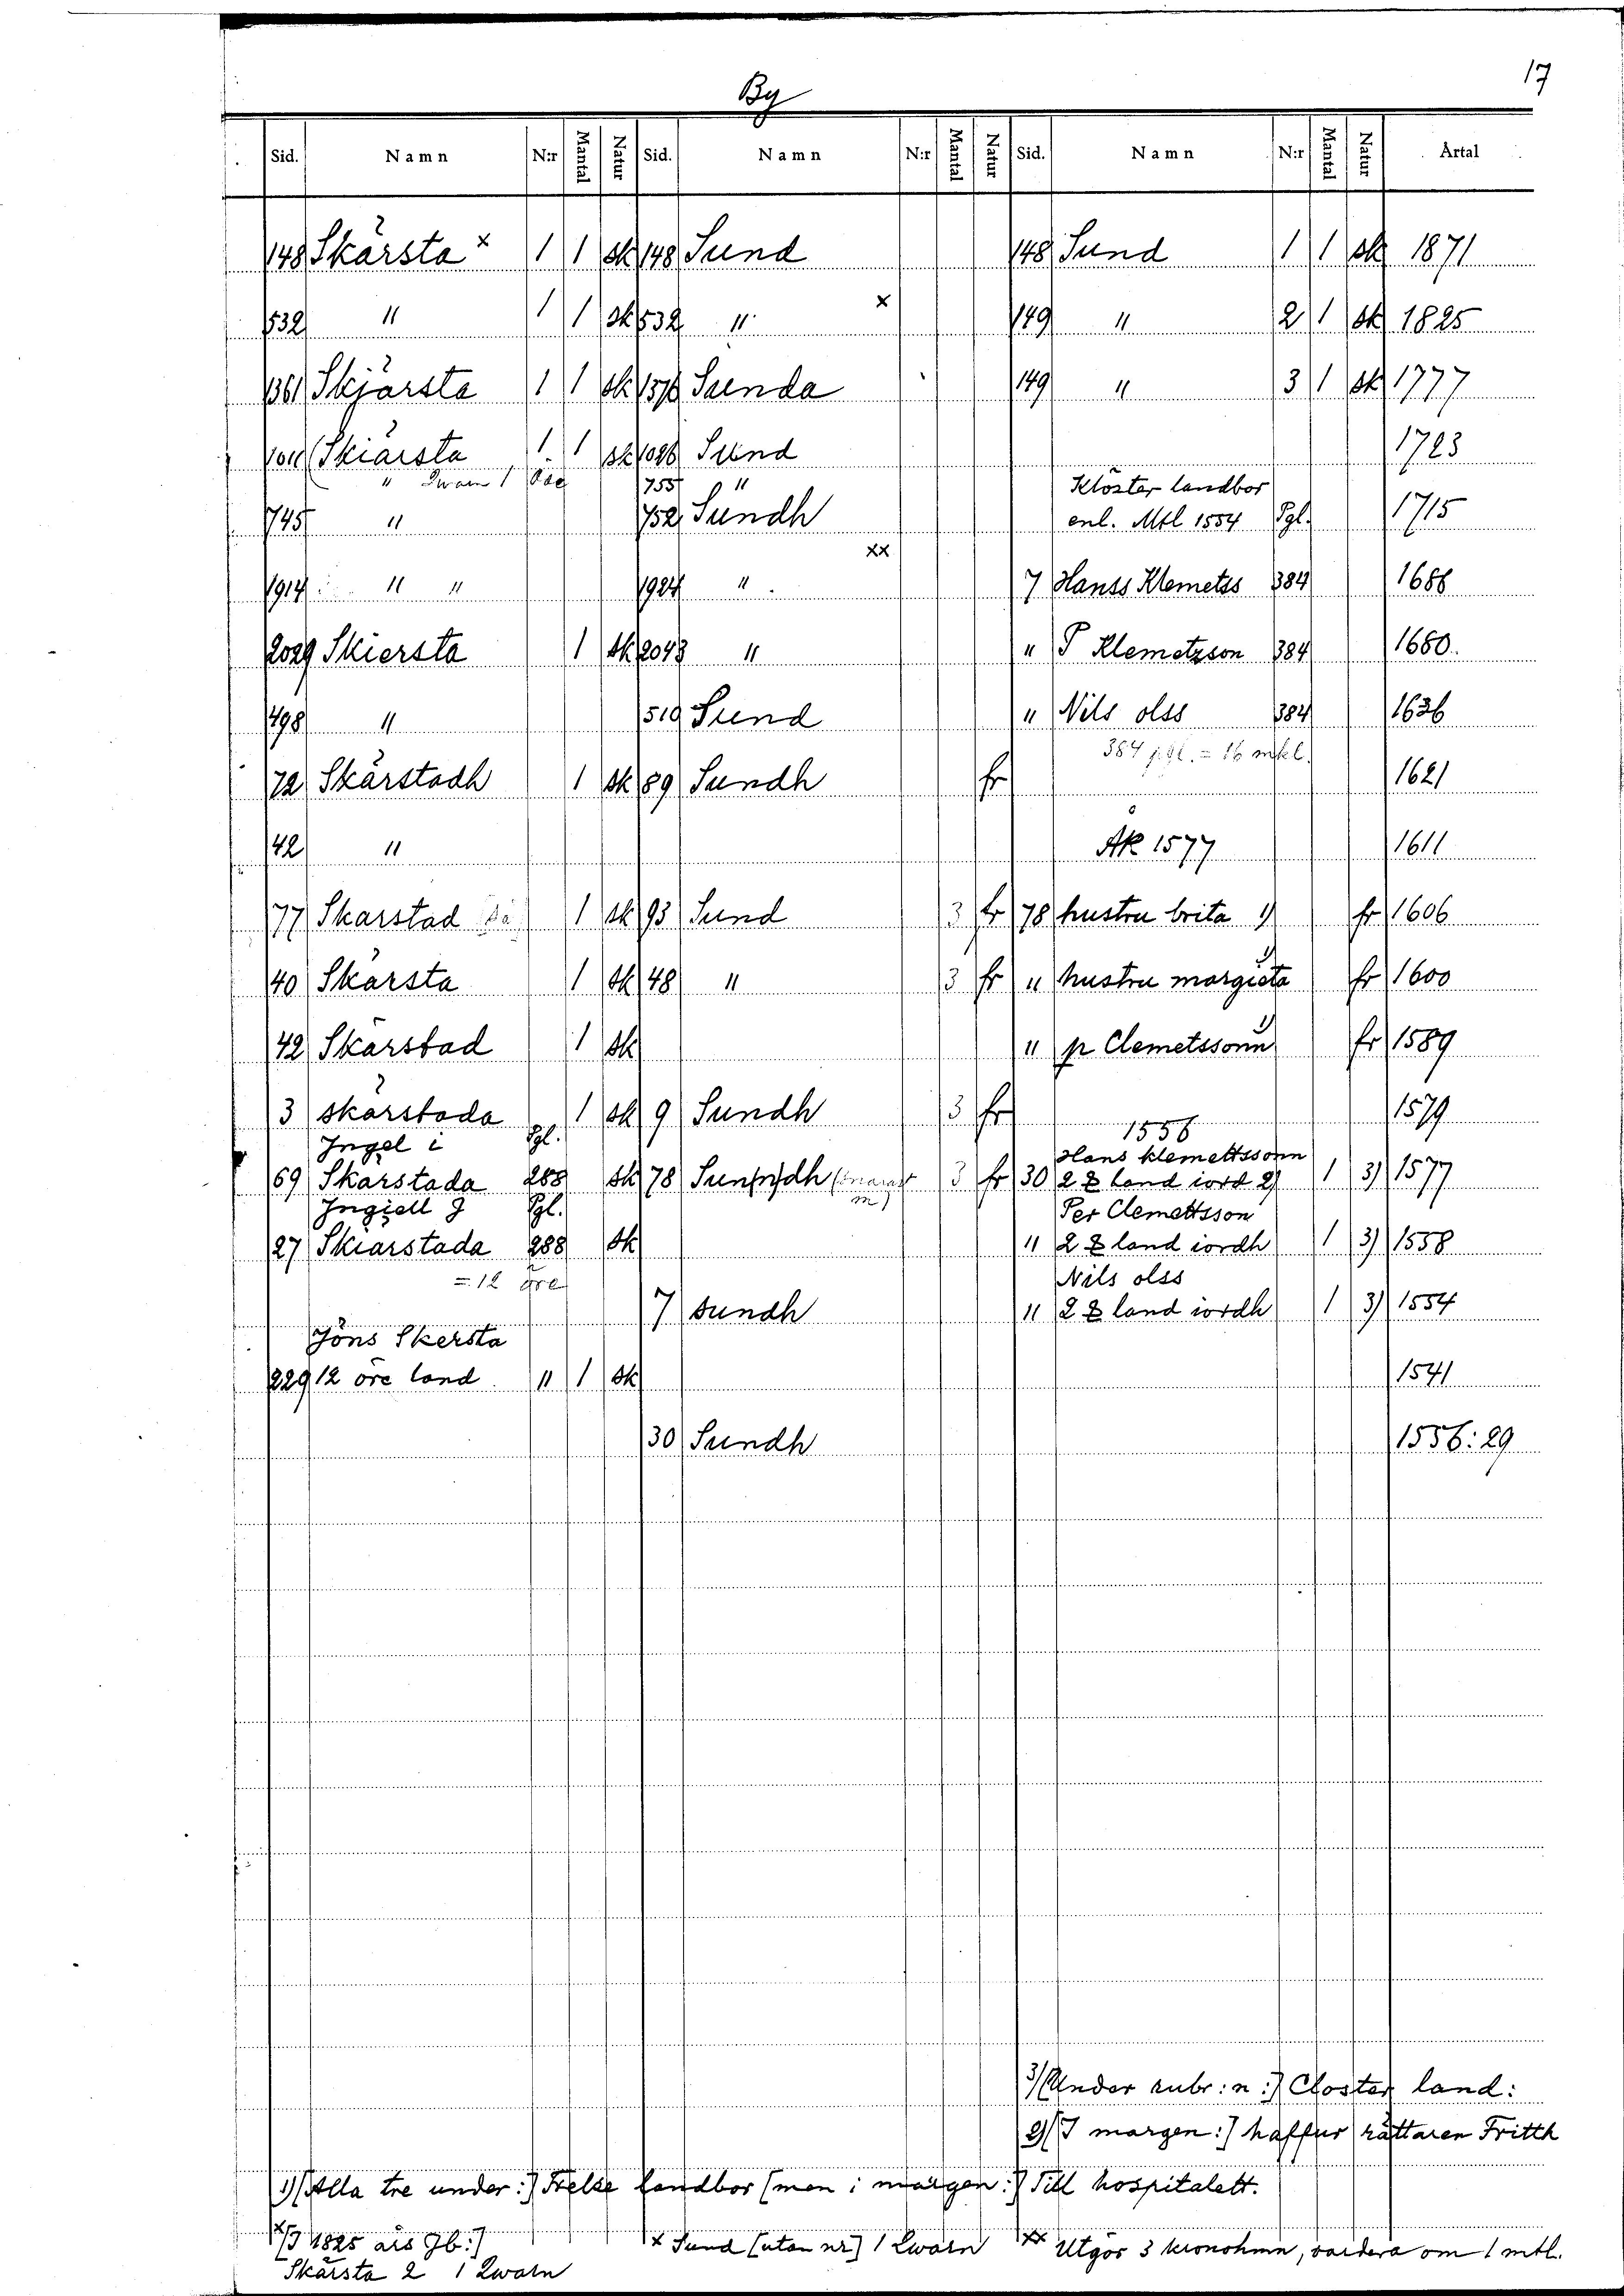 17
By
Sid. Namn N:r Mantal Natur Sid. Namn N:r Mantal Natur Sid. Namn N:r Mantal Natur Årtal
148 Skärsta x 1 1 sk 148 Sund 148 Sund 1 1 sk 1871
532 " 1 1 sk 532 " x 149 " 2 1 sk 1825
1361 Skjärsta 1 1 sk 1376 Sunda 149 " 3 1 sk 1777
1011 Skiärsta 1 1 sk 1026 Sund 1723
" Qwarn 1
755 " Kloster landbor
745 " 752 Sundh enl. Mtl 1554 Pgl. 1715
1914 " " 1924 " xx 7 Hanss Klemetss 384 1688
2029 Skiersta 1 sk 2043 " " P Klemetzson 384 1680
498 " 519 Sund " Nils olss 384 1636
384 pgl. = 16 mkl.
72 Skärstadh 1 sk 89 Sundh fr 1621
42 " ÅK 1577 1611
77 Skarstad 1 sk 93 Sund 3 fr 78 hustru brita 1) fr 1606
40 Skärsta 1 sk 48 " 3 fr " hustru margieta 1) fr 1600
42 Skärstad 1 sk " pr Clemetssonn 1) fr 1589
3 skärstada 1 sk 9 Sundh 3 fr 1579
Ingel i Pgl. 1556
Hans klemettssonn
69 Skarstada 288 sk 78 3 fr 30 2 § land iord 2) 1 3) 1577
Ingiell J Pgl. Per Clemettsson
27 Skiarstada 288 sk " 2 § land iordh 1 3) 1558
= 12 öre Nils olss
7 sundh " 2 § land iordh 1 3) 1554
Jöns Skersta
229 12 öre land " 1 sk 1541
30 Sundh 1556:29
3) [Under rubr:n:] Closter land:
2) [I margen:] haffur rättaren Fritth
1) [Alla tre under:] Frelse landbor [men i margen:] Till hospitalett.
x [I 1825 års Jb:] x Sund [utan nr] 1 Qwarn xx Utgör 3 kronohmn, vardera om 1 mtl.
Skärsta 2 1 Qwarn